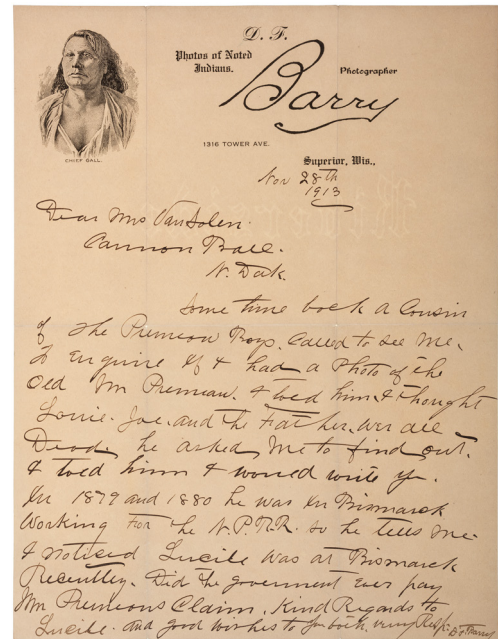 D. F.
Barry
Photos of Noted
Indians.
Photographer
1316 TOWER AVE.
CHIEF GALL.
Superior, Wis.,
Nov 28th
1913
Dear Mrs Van Solen.
Cannon Ball.
N. Dak.
Some time back a Cousin
of the Premeau Boys. Called to see me.
to Enquire if I had a Photo of the
old Mr Premeau. I toed him I thought
Louie. Joe. and the Father. wer all
Dead. he asked me to find out.
I toed him I would write yu.
In 1879 and 1880 he was in Bismarck
Working for the N.P.R.R. so he tells me.
I noticed Lucile was at Bismarck
Recently. Did the goverment Ever pay
Mr Premeous Claim. Kind Regards to
Lucile. and good wishes to you both. very Resp. D F Barry